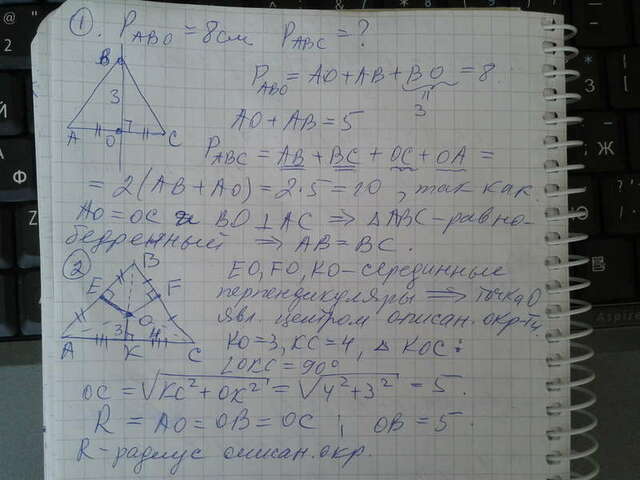 ① . P_ABO = 8см P_ABC = ?
P_ABO = AO + AB + BO = 8
3
AO + AB = 5
P_ABC = AB + BC + OC + OA =
= 2(AB + AO) = 2·5 = 10 , так как
AO = OC и BO ⊥ AC ⇒ △ABC – равно-
бедренный ⇒ AB = BC.
B
3
A O C
② B
E F
O
3 4
A K C
EO, FO, KO – серединные
перпендикуляры ⇒ точка O
явл. центром описан. окр-ти
KO = 3, KC = 4, △ KOC:
∠OKC = 90°
OC = √KC² + OK² = √4² + 3² = 5
R = AO = OB = OC ; OB = 5
R – радиус описан. окр.
Aspire